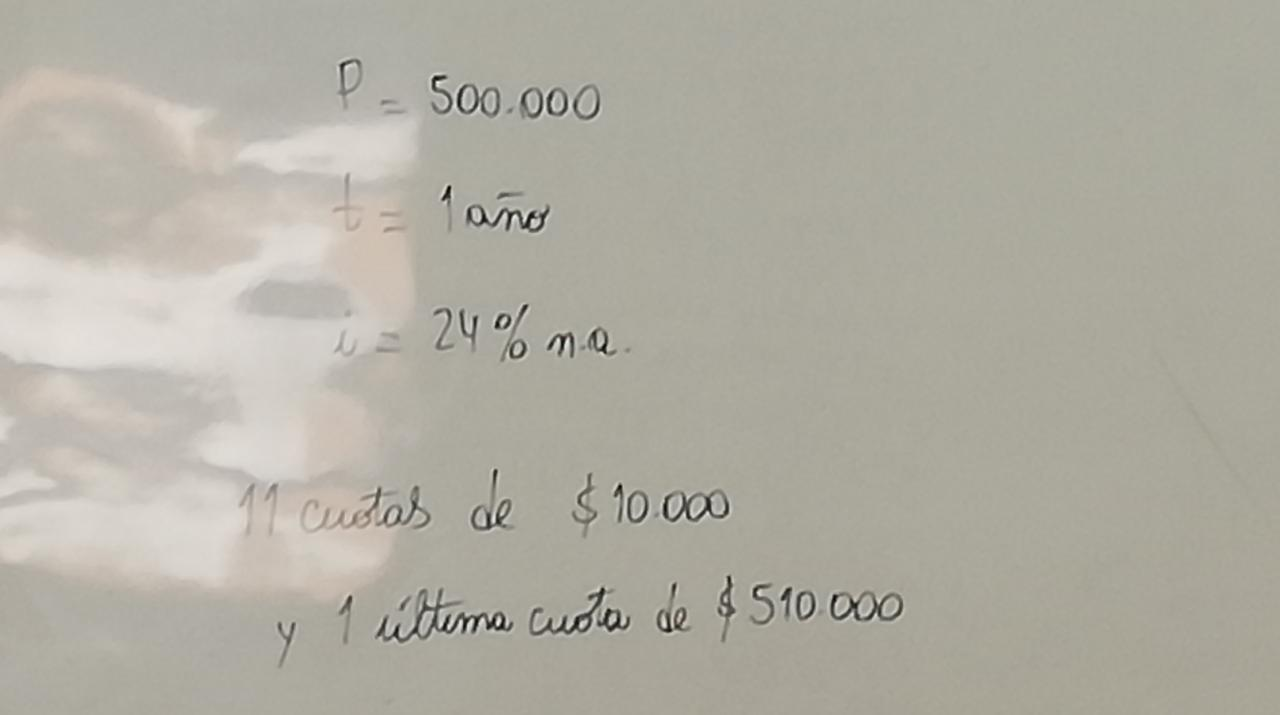 P = 500.000
t = 1 año
i = 24% n.a.
11 cuotas de $10.000
y 1 última cuota de $510.000